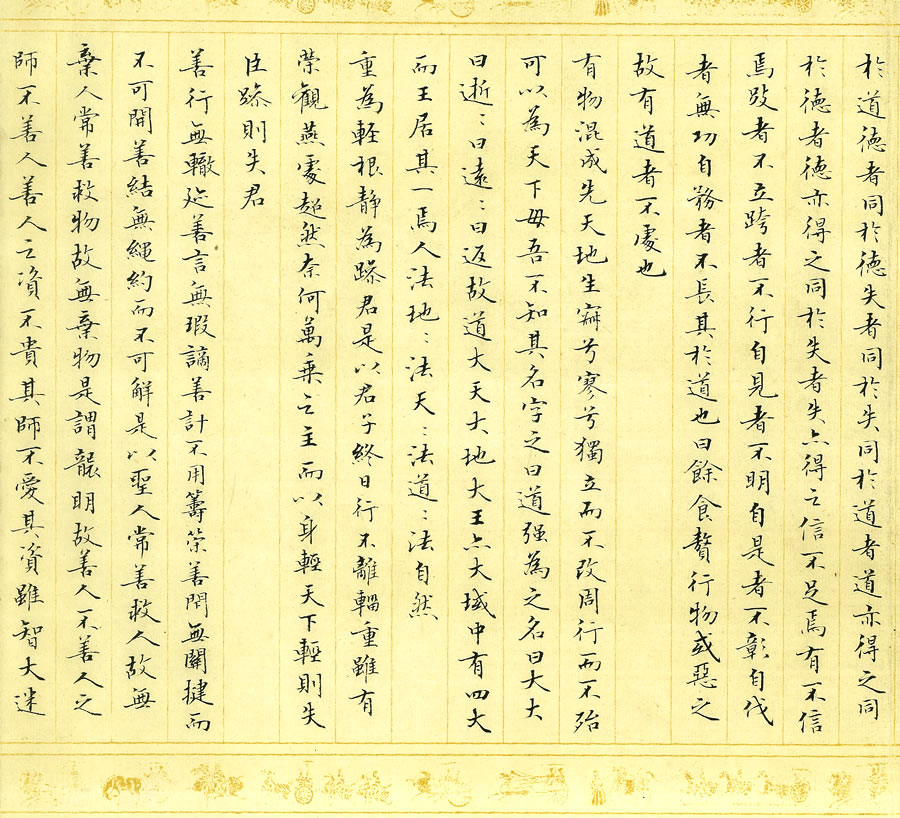 於道德者同於德失者同於失同於道者道亦得之同
於德者德亦得之同於失者失亦得之信不足焉有不信
焉跂者不立跨者不行自見者不明自是者不彰自伐
者無功自矜者不長其於道也曰餘食贅行物或惡之
故有道者不處也
有物混成先天地生寂兮寥兮獨立而不改周行而不殆
可以為天下母吾不知其名字之曰道强為之名曰大大
曰逝:曰遠:曰返故道大天大地大王亦大域中有四大
而王居其一焉人法地:法天:法道:法自然
重為輕根靜為躁君是以君子終日行不離輜重雖有
榮觀燕處超然奈何萬乘之主而以身輕天下輕則失
臣躁則失君
善行無轍迹善言無瑕謫善計不用籌策善閉無關揵而
不可開善結無繩約而不可解是以聖人常善救人故無
棄人常善救物故無棄物是謂襲明故善人不善人之
師不善人善人之資不貴其師不愛其資雖智大迷